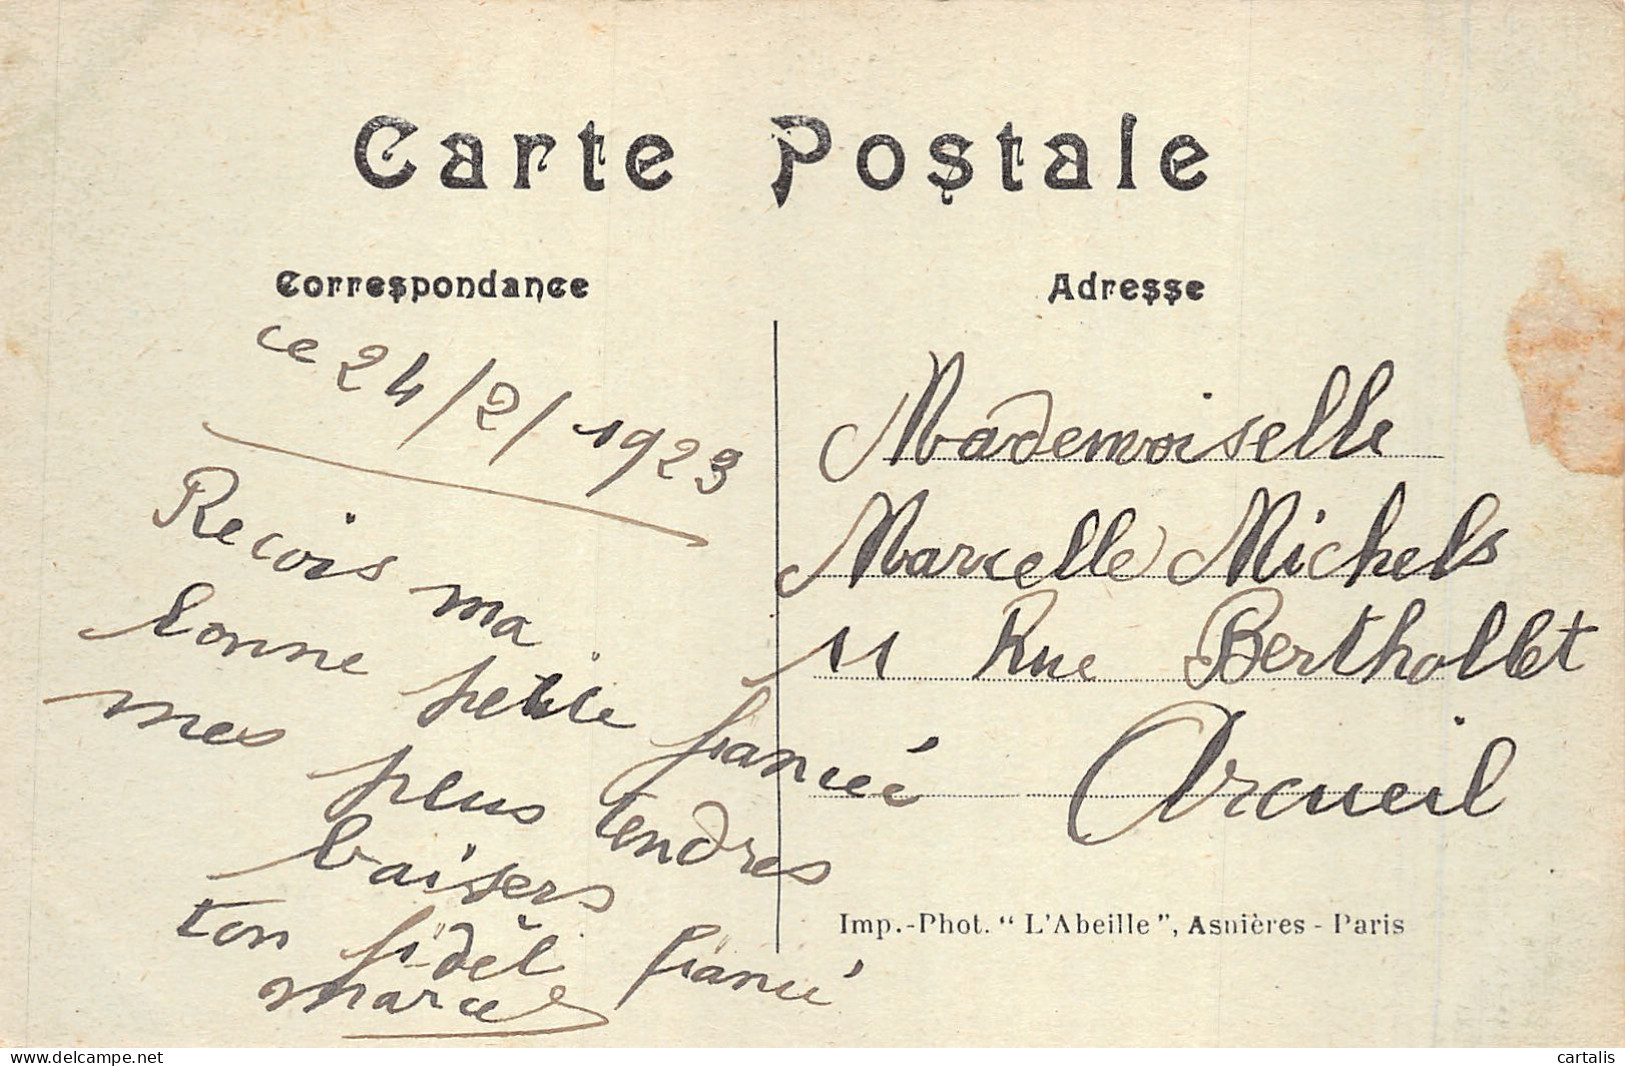 Carte Postale
Correspondance
ce 24/2/1923
Recois ma
bonne petite fiancée
mes plus tendres
baisers
ton fidèl fiancé
Marcel
Adresse
Mademoiselle
Marcelle Michels
11 Rue Berthollet
Arcueil
Imp.-Phot. "L'Abeille", Asnières - Paris
cartalis